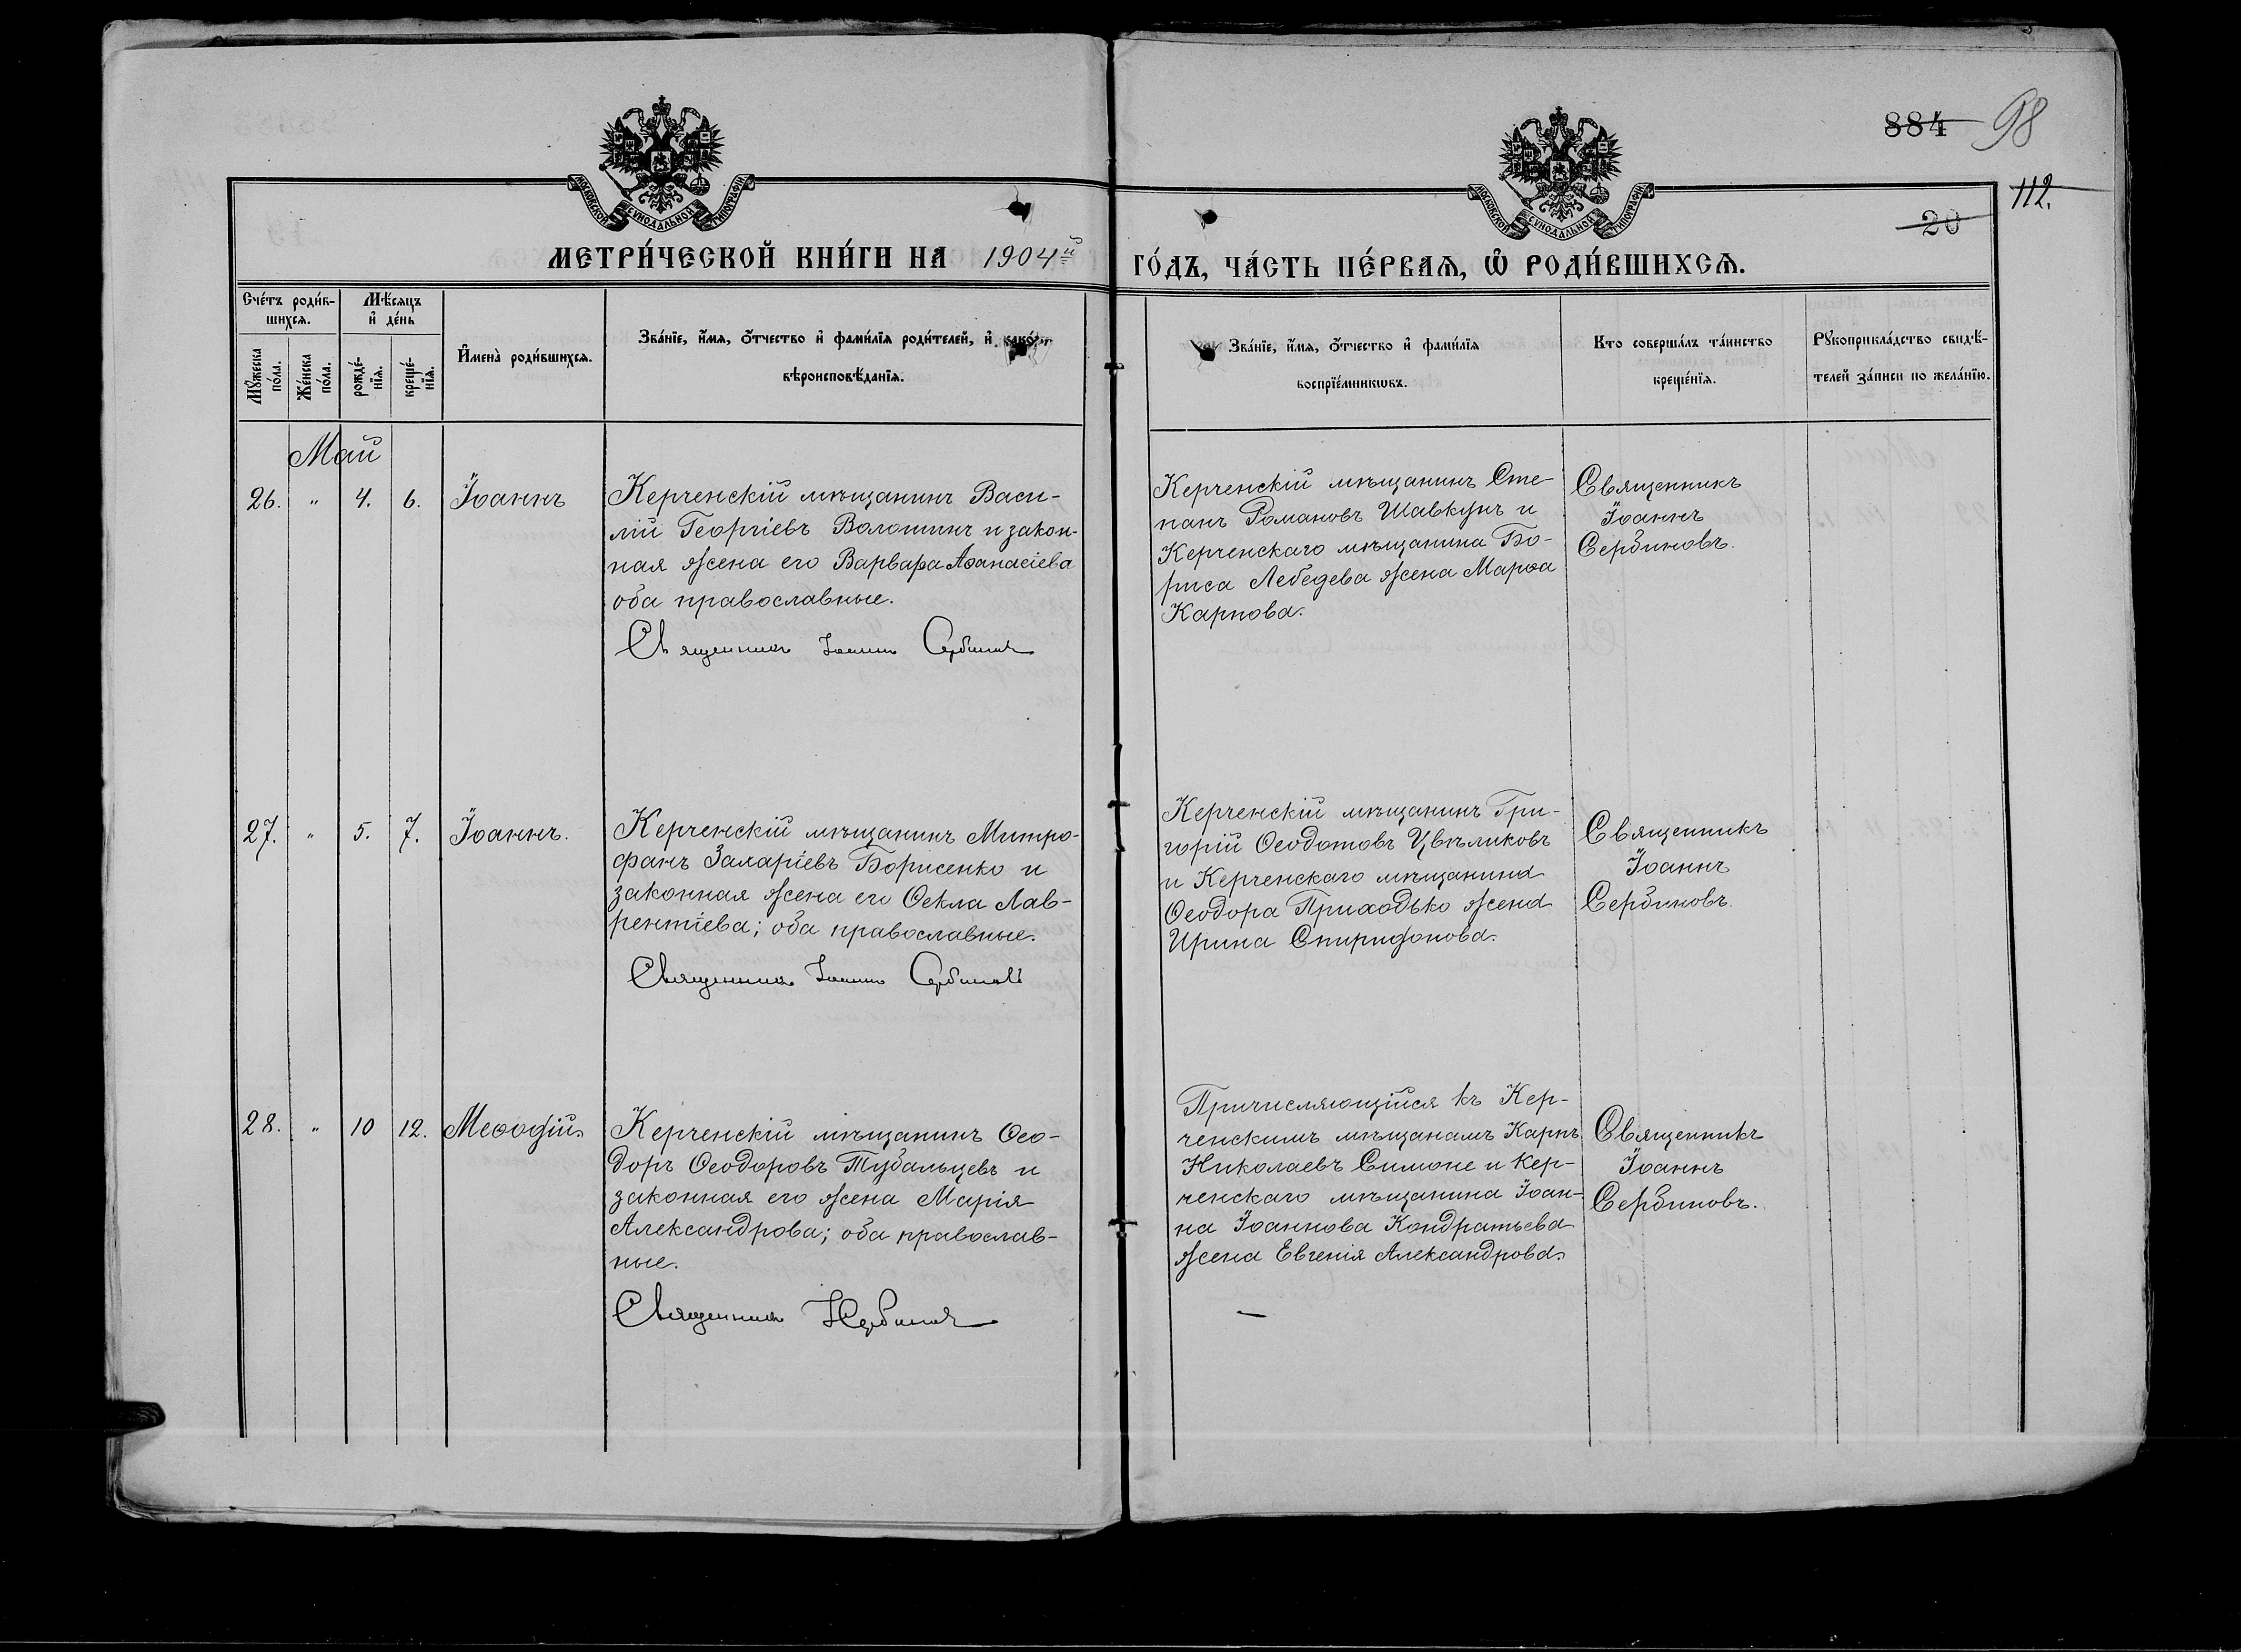 884 98
112.
20
МОСКОВСКОЙ СУНОДАЛЬНОЙ ТИПОГРАФІИ
МОСКОВСКОЙ СУНОДАЛЬНОЙ ТИПОГРАФІИ
МЕТРИ́ЧЕСКОЙ КНИ́ГИ НА 1904й ГО́ДЪ, ЧА́СТЬ ПЕ́РВАѦ, Ѿ РОДИ́ВШИХСѦ.
Сче́тъ роди́в-
шихсѧ.
Мꙋжеска
по́ла.
Же́нска
по́ла.
Мѣ́сѧцъ
и҆ де́нь
рожде́-
нїѧ.
креще́-
нїѧ.
И҆мена̀ роди́вшихсѧ.
Зва́нїе, и҆́мѧ, ѻ҆́тчество и҆ фами́лїѧ роди́телей, и҆ како́гѡ
вѣроисповѣ́данїѧ.
Зва́нїе, и҆́мѧ, ѻ҆́тчество и҆ фами́лїѧ
воспрїе́мникѡвъ.
Кто соверша́лъ та́инство
креще́нїѧ.
Рꙋкоприкла́дство свидѣ́-
телей за́писи по жела́нїю.
Май
26. " 4. 6. Іоаннъ
Керченскій мѣщанинъ Васи-
лій Георгіевъ Волошинъ и закон-
ная жена его Варвара Аѳанасіева
оба православные.
Священникъ Іоаннъ Сербиновъ
Керченскій мѣщанинъ Сте-
панъ Романовъ Шавкунъ и
Керченскаго мѣщанина Бо-
риса Лебедева жена Марѳа
Карпова.
Священникъ
Іоаннъ
Сербиновъ.
27. " 5. 7. Іоаннъ.
Керченскій мѣщанинъ Митро-
фанъ Захаріевъ Борисенко и
законная жена его Ѳекла Лав-
рентіева; оба православные.
Священникъ Іоаннъ Сербиновъ
Керченскій мѣщанинъ Гри-
горій Ѳеодотовъ Цвѣликовъ
и Керченскаго мѣщанина
Ѳеодора Приходько жена
Ирина Спиридонова.
Священникъ
Іоаннъ
Сербиновъ.
28. " 10 12. Меѳодій.
Керченскій мѣщанинъ Ѳео-
доръ Ѳеодоровъ Тубальцевъ и
законная его жена Марія
Александрова; оба православ-
ные.
Священникъ ІСербиновъ
Причисляющійся къ Кер-
ченскимъ мѣщанамъ Карпъ
Николаевъ Симоне и Кер-
ченскаго мѣщанина Іоан-
на Іоаннова Кондратьева
жена Евгенія Александрова.
Священникъ
Іоаннъ
Сербиновъ.